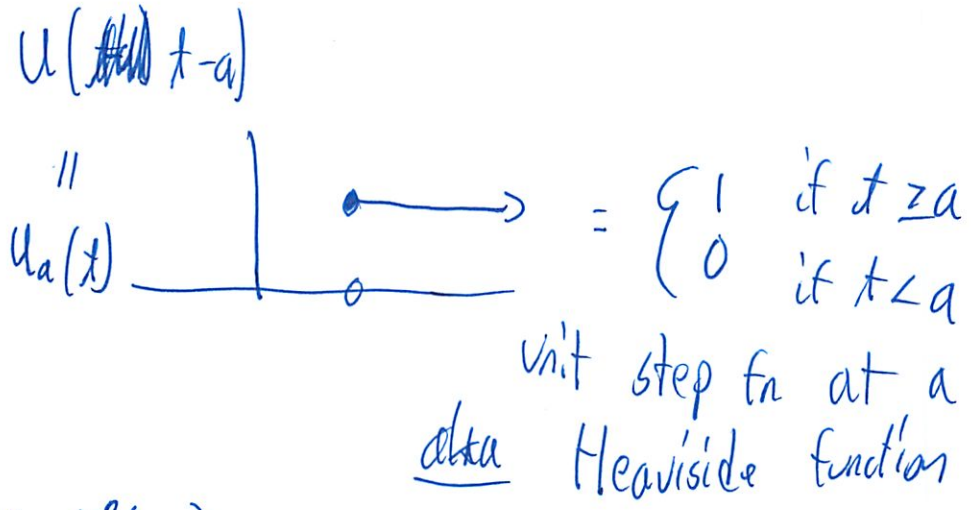 u(t-a)
||
u_a(t) = { 1 if t ≥ a
0 if t < a
unit step fn at a
aka Heaviside function